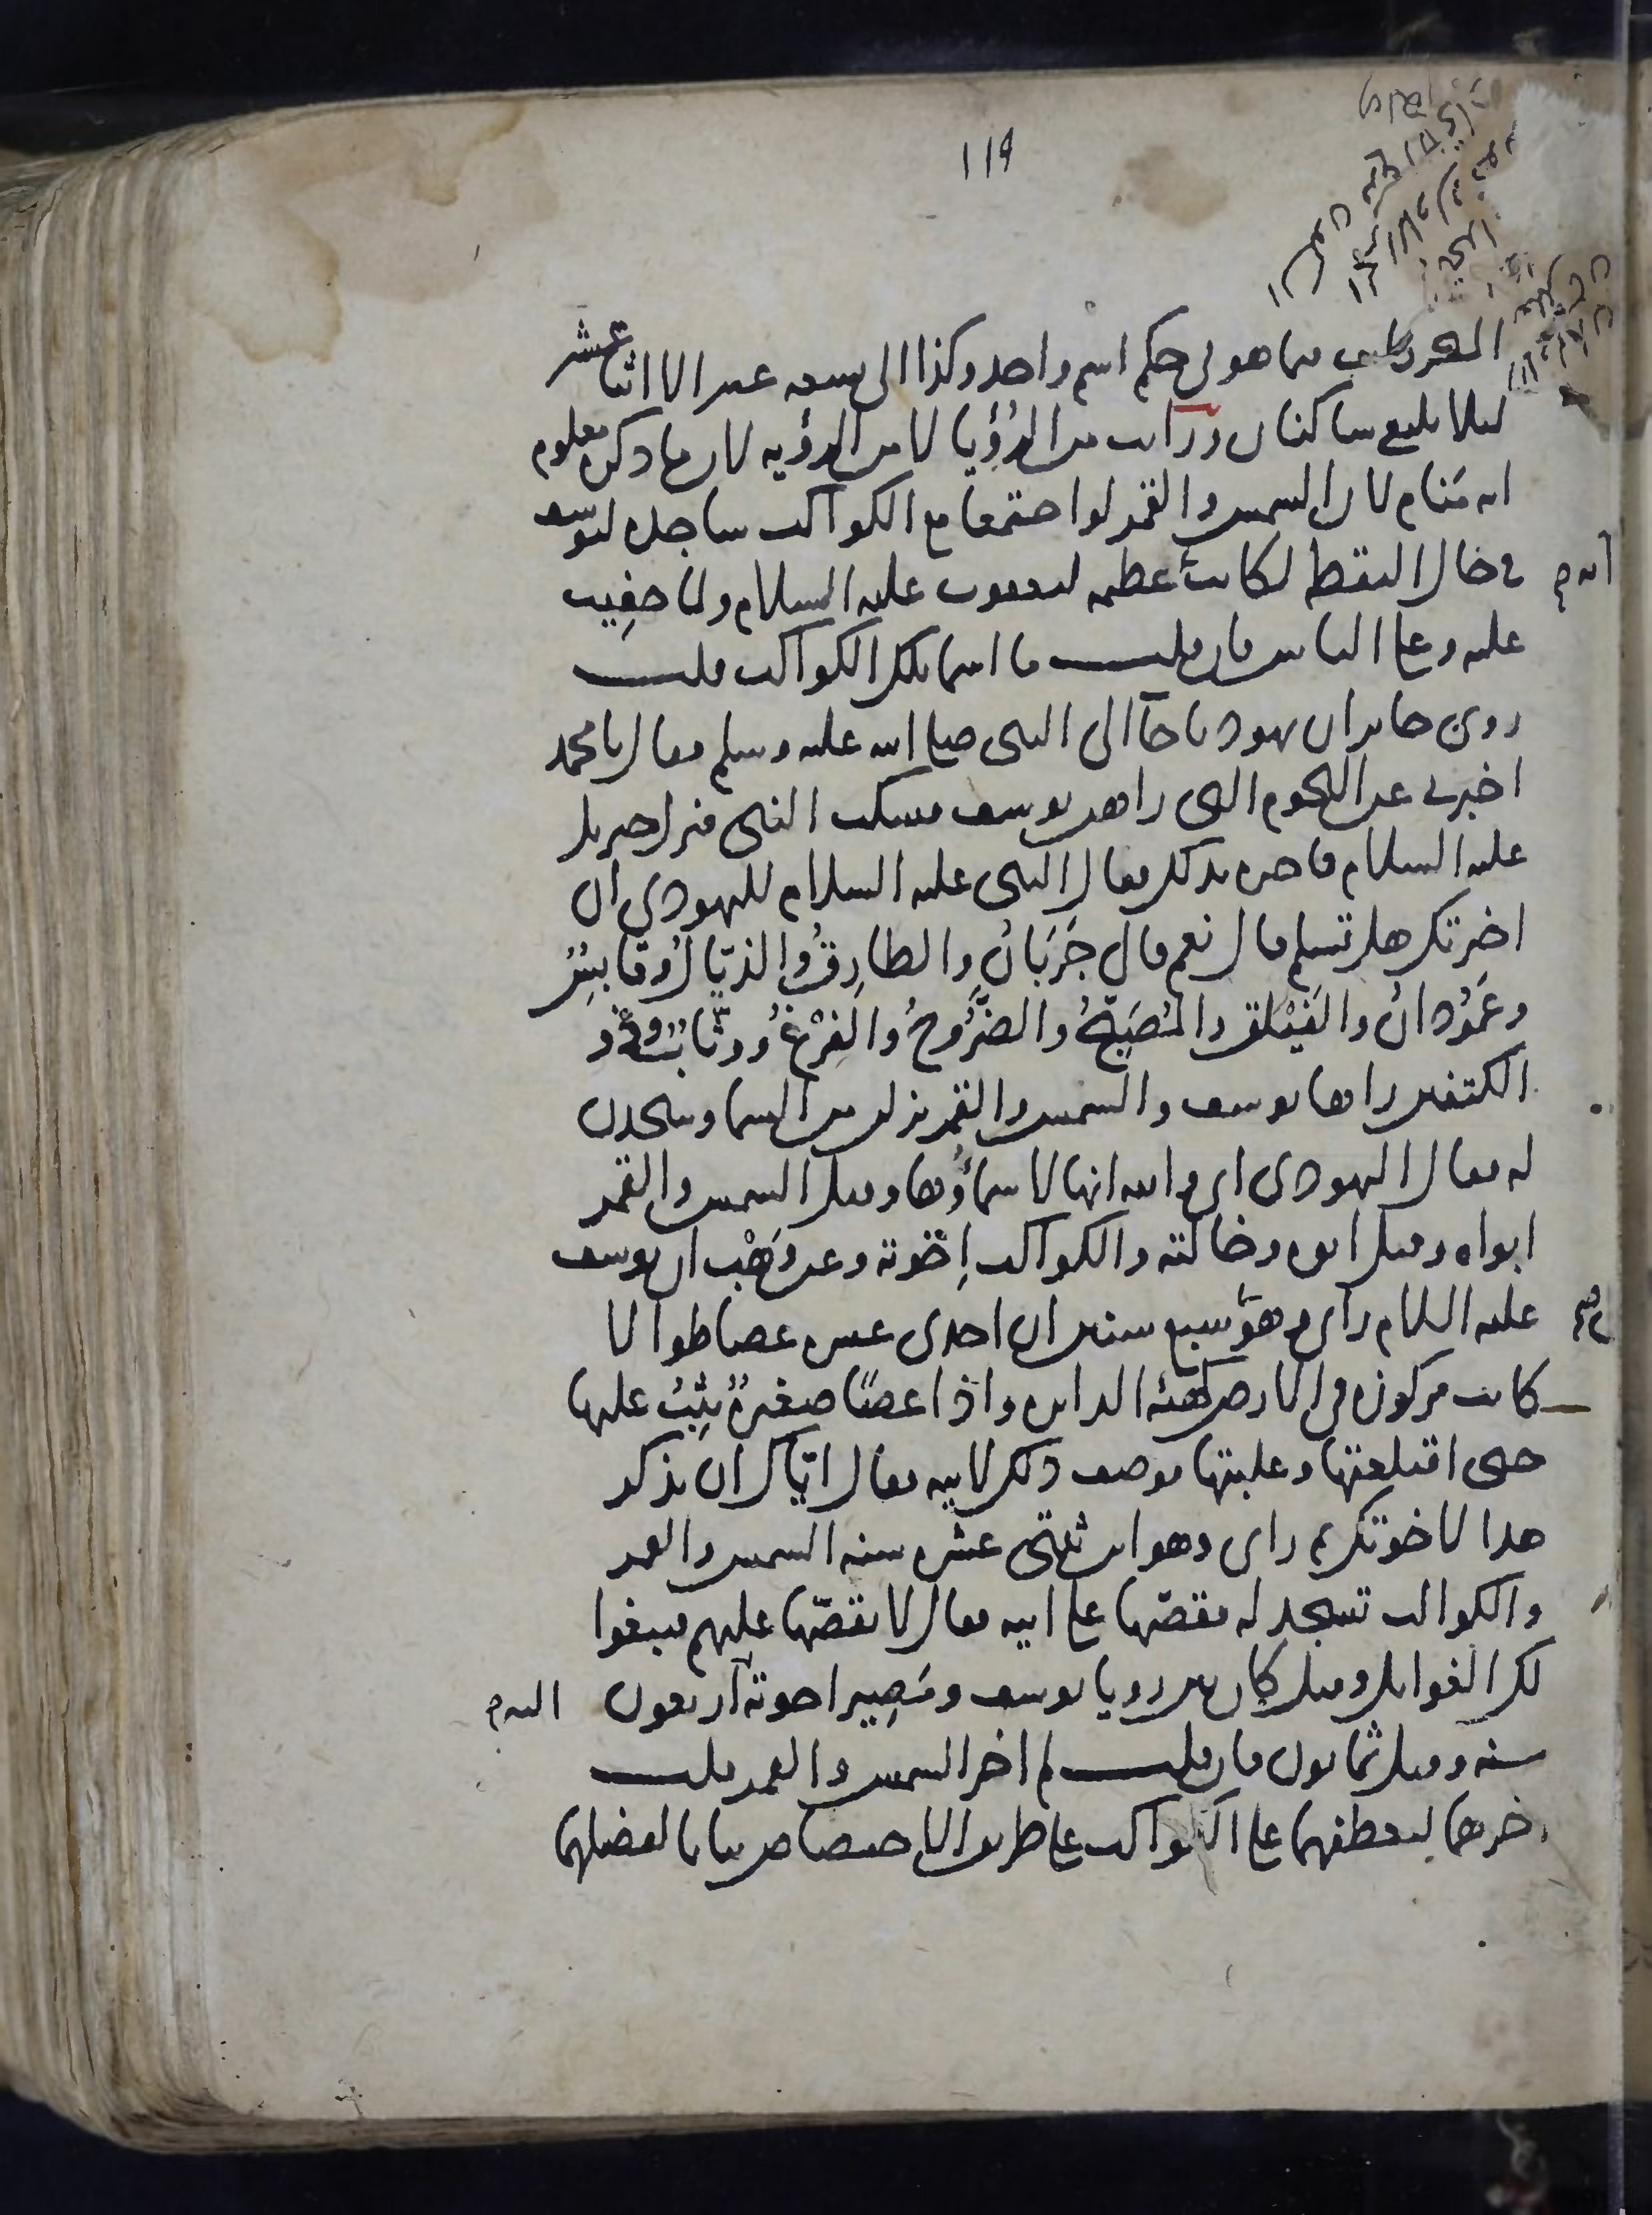 119
الحركات فيما هو في حكم اسم واحد وكذا الى تسعة عشر الا اثنا عشر
ليلا يلتقى ساكنان ورأيت من الرُؤيا لا من الرؤيه لان ما ذكره معلوم
انه مَنام لان الشمس والقمر لو اجتمعا مع الكواكب ساجدة ليوسف
في حال اليقظة لكانت عظيمه ليعقوب عليه السلام ولما خفِيت
عليه وعلى الناس فان قلت ما اسما تلك الكواكب قلت
روى جابر ان يهوديا جآ الى النبى صلى الله عليه وسلم فقال يا محمد
اخبرنى عن النجوم التى راهن يوسف فسكت النبى فنزل جبريل
عليه السلام فاخبره بذلك فقال النبى عليه السلام لليهودى ان
اخبرتك هل تسلم قال نعم قال جَرَبَانُ والطارِقُ والذيّالُ وقابِسُ
وعَمُوْدانُ والفَيْلق والمُصَبّحُ والضَّرُوحُ والفَرْغُ ووثّابُ وذو
الكتفين راها يوسف والشمس والقمر نزلن من السما وسجدن
له فقال اليهودى اى والله انها لاسماؤُها وقيل الشمس والقمر
ابواه وقيل ابوه وخالته والكواكب إِخوته وعن وَهْب ان يوسف
عليه السلام راى وهو ابن سبع سنين ان احدى عشره عصا طوالا
كانت مركوزه فى الارض كهيئة الدايره واذا عصًا صغيرةٌ تثِبُ عليها
حتى اقتلعتها وغلبتها فوصف ذلك لابيه فقال ايّاك ان تذكر
هذا لاخوتك ثم راى وهو ابن ثنتى عشره سنه الشمس والقمر
والكواكب تسجد له فقصّها على ابيه فقال لا تقصّها عليهم فيبغوا
لك الغوايل وقيل كان بين رويا يوسف ومَصِير اخوته اربعون
سنه وقيل ثمانون فان قلت لم اخر الشمس والقمر قلت
اخرهما ليعطفهما على الكواكب على طريق الاختصاص بيانا لفضلهما